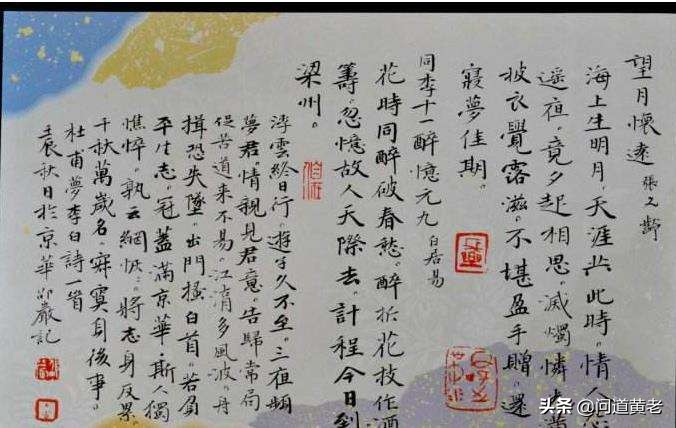 望月懷遠 張九齡
海上生明月。天涯共此時。情人怨
遥夜。竟夕起相思。滅燭憐光滿
披衣覺露滋。不堪盈手贈。還
寢夢佳期。
同李十一醉憶元九 白居易
花時同醉破春愁。醉折花枝作酒
籌。忽憶故人天際去。計程今日到
梁州。
浮雲終日行。遊子久不至。三夜頻
夢君。情親見君意。告歸常局
促苦道来不易。江湖多風波。舟
楫恐失墜。出門搔白首。若負
平生志。冠蓋滿京華。斯人獨
憔悴。孰云網恢。將志身反累。
千秋萬歲名。寂寞身後事。
杜甫夢李白詩一首
壬辰秋日於京華 巖記
头条 @问道黄老